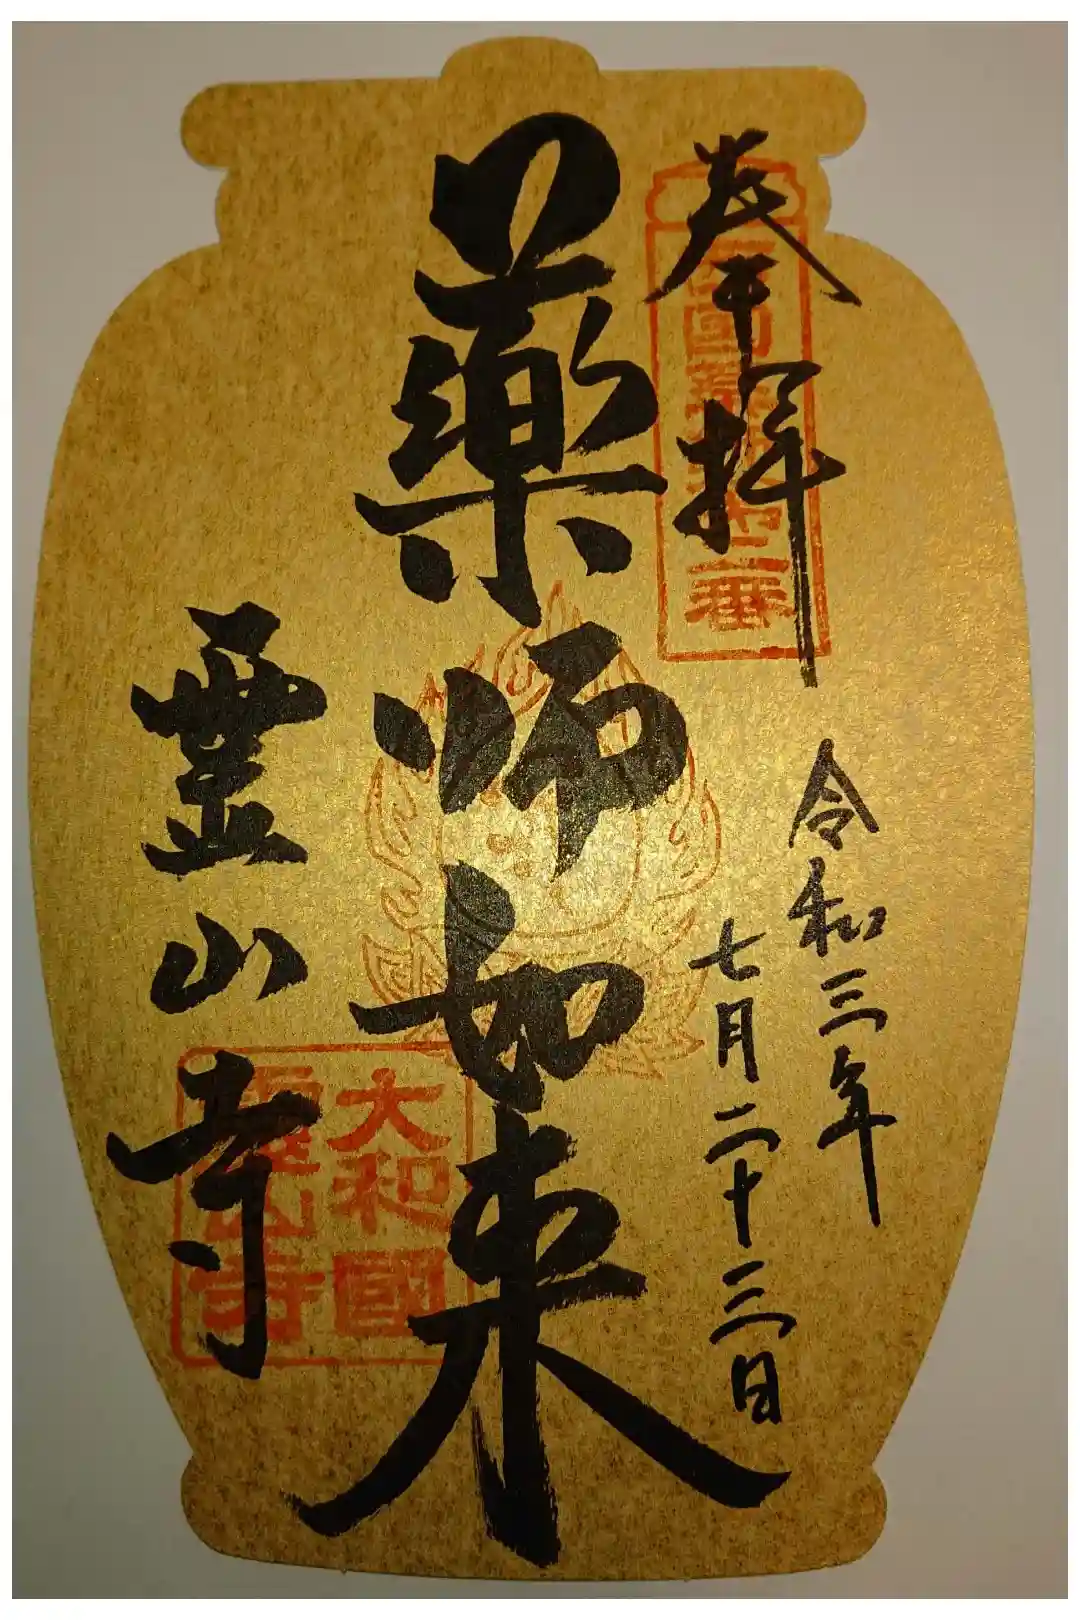 奉拝
令和三年
七月二十三日
藥師如来
霊山寺
大和國
霊山寺